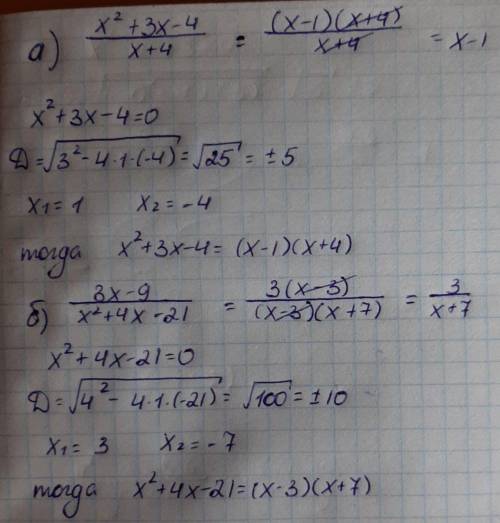 а) (x² + 3x - 4)/(x + 4) = ((x - 1)(x + 4))/(x + 4) = x - 1
x² + 3x - 4 = 0
Д = √(3² - 4·1·(-4)) = √25 = ± 5
x₁ = 1 x₂ = -4
тогда x² + 3x - 4 = (x - 1)(x + 4)
б) (3x - 9)/(x² + 4x - 21) = (3(x - 3))/((x - 3)(x + 7)) = 3/(x + 7)
x² + 4x - 21 = 0
Д = √(4² - 4·1·(-21)) = √100 = ± 10
x₁ = 3 x₂ = -7
тогда x² + 4x - 21 = (x - 3)(x + 7)